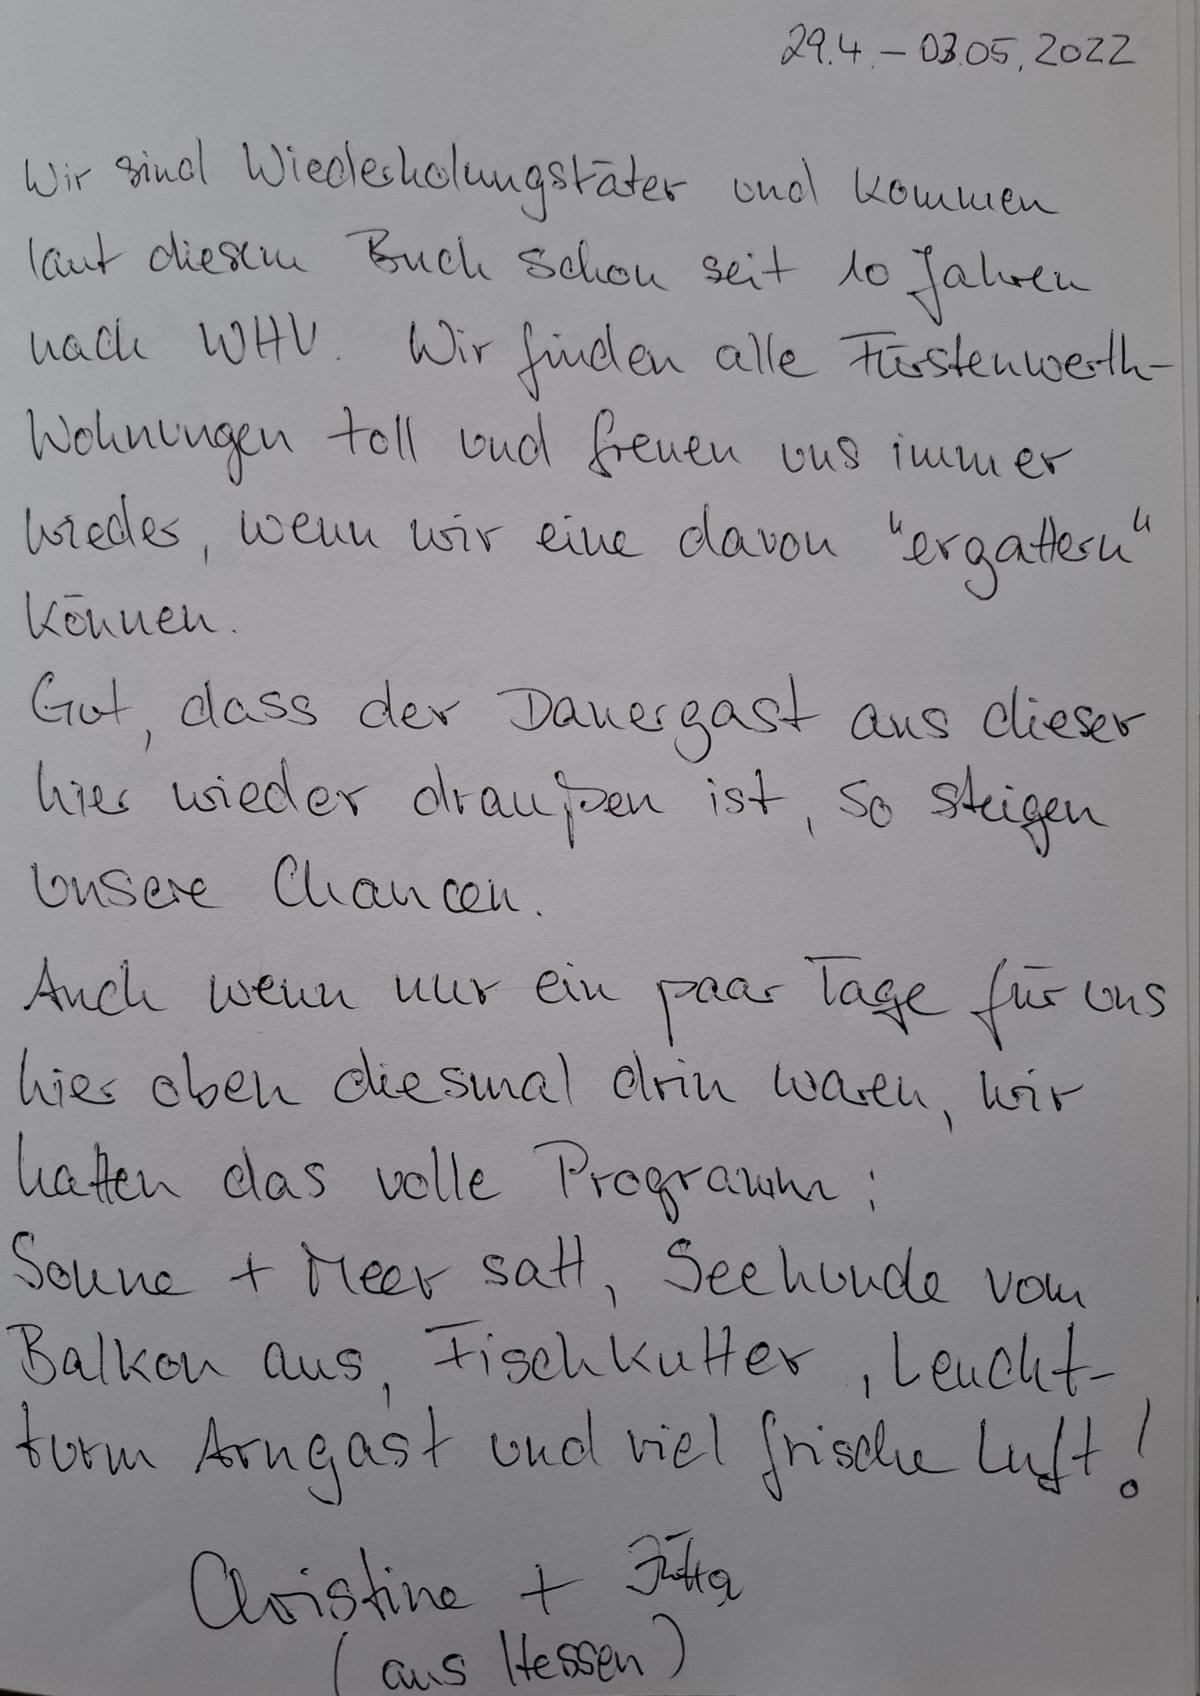 29.4. – 03.05.2022
Wir sind Wiederholungstäter und kommen
laut diesem Buch schon seit 10 Jahren
nach WHV. Wir finden alle Fürstenwerth-
Wohnungen toll und freuen uns immer
wieder, wenn wir eine davon "ergattern"
können.
Gut, dass der Dauergast aus dieser
hier wieder draußen ist, so steigen
unsere Chancen.
Auch wenn nur ein paar Tage für uns
hier oben diesmal drin waren, wir
hatten das volle Programm:
Sonne + Meer satt, Seehunde vom
Balkon aus, Fischkutter, Leucht-
turm Arngast und viel frische Luft!
Christine + Jutta
(aus Hessen)